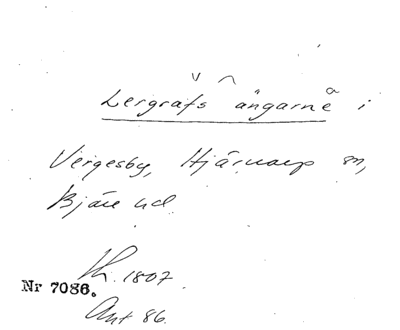 Lergrafs ängarne i
Vergesby, Hjärnarp sn,
Bjäre hd.
Sk. 1807.
Nr 7086.
Ant 86.